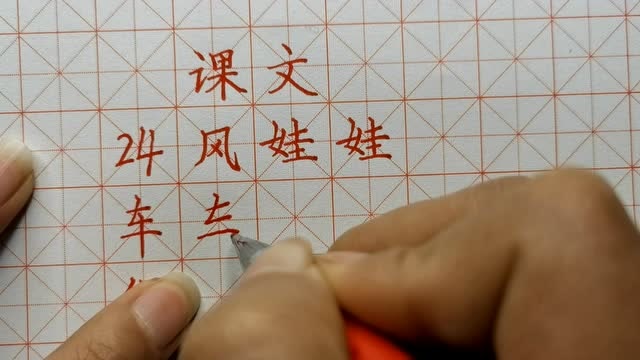 课文
24 风娃娃
车